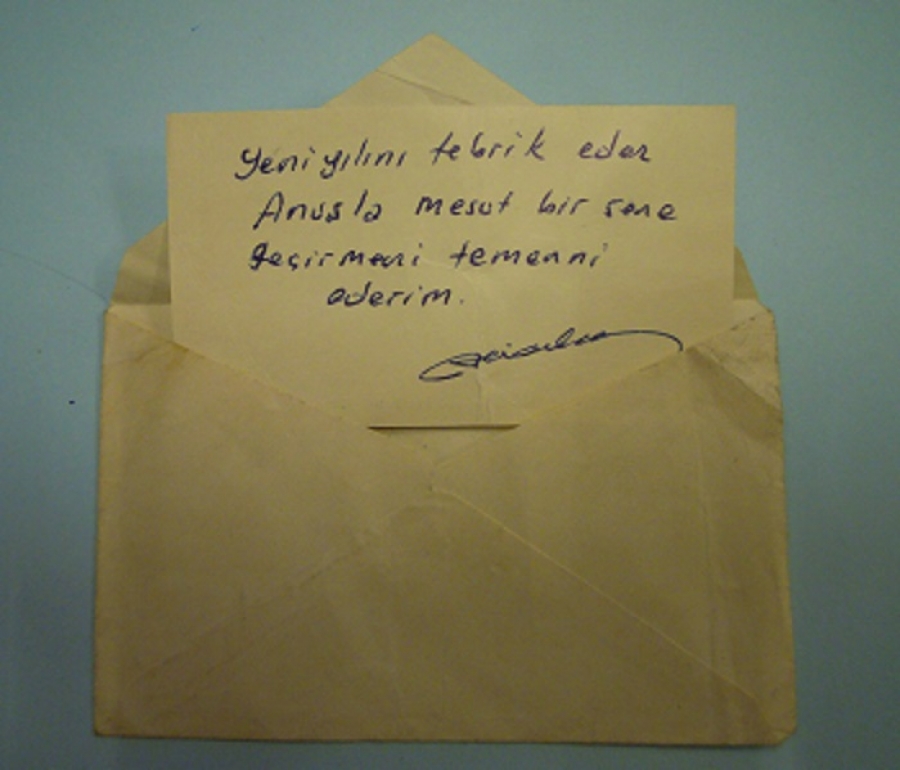 Yeni yılını tebrik eder
Anuşla mesut bir sene
geçirmeni temenni
ederim.